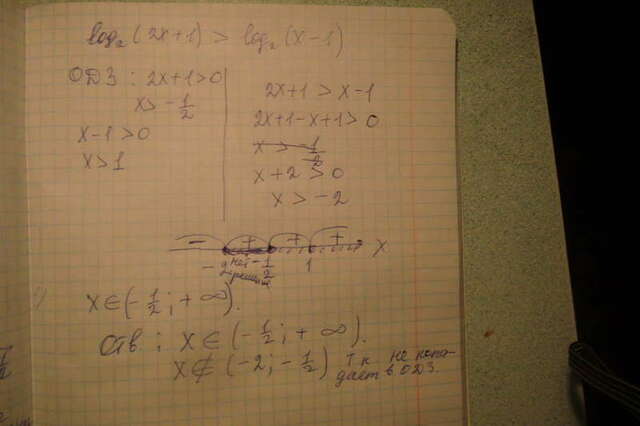 log₂(2x+1) > log₂(x-1)
ОДЗ: 2x+1>0
x>-1/2
x-1>0
x>1
2x+1 > x-1
2x+1-x+1>0
x > -1/2
x+2 > 0
x > -2
- + + + x
-2 нет -1/2 1
решений
x ∈ (-1/2; +∞).
Отв.: x ∈ (-1/2; +∞).
x ∉ (-2; -1/2) т.к. не попа-
дает в ОДЗ.